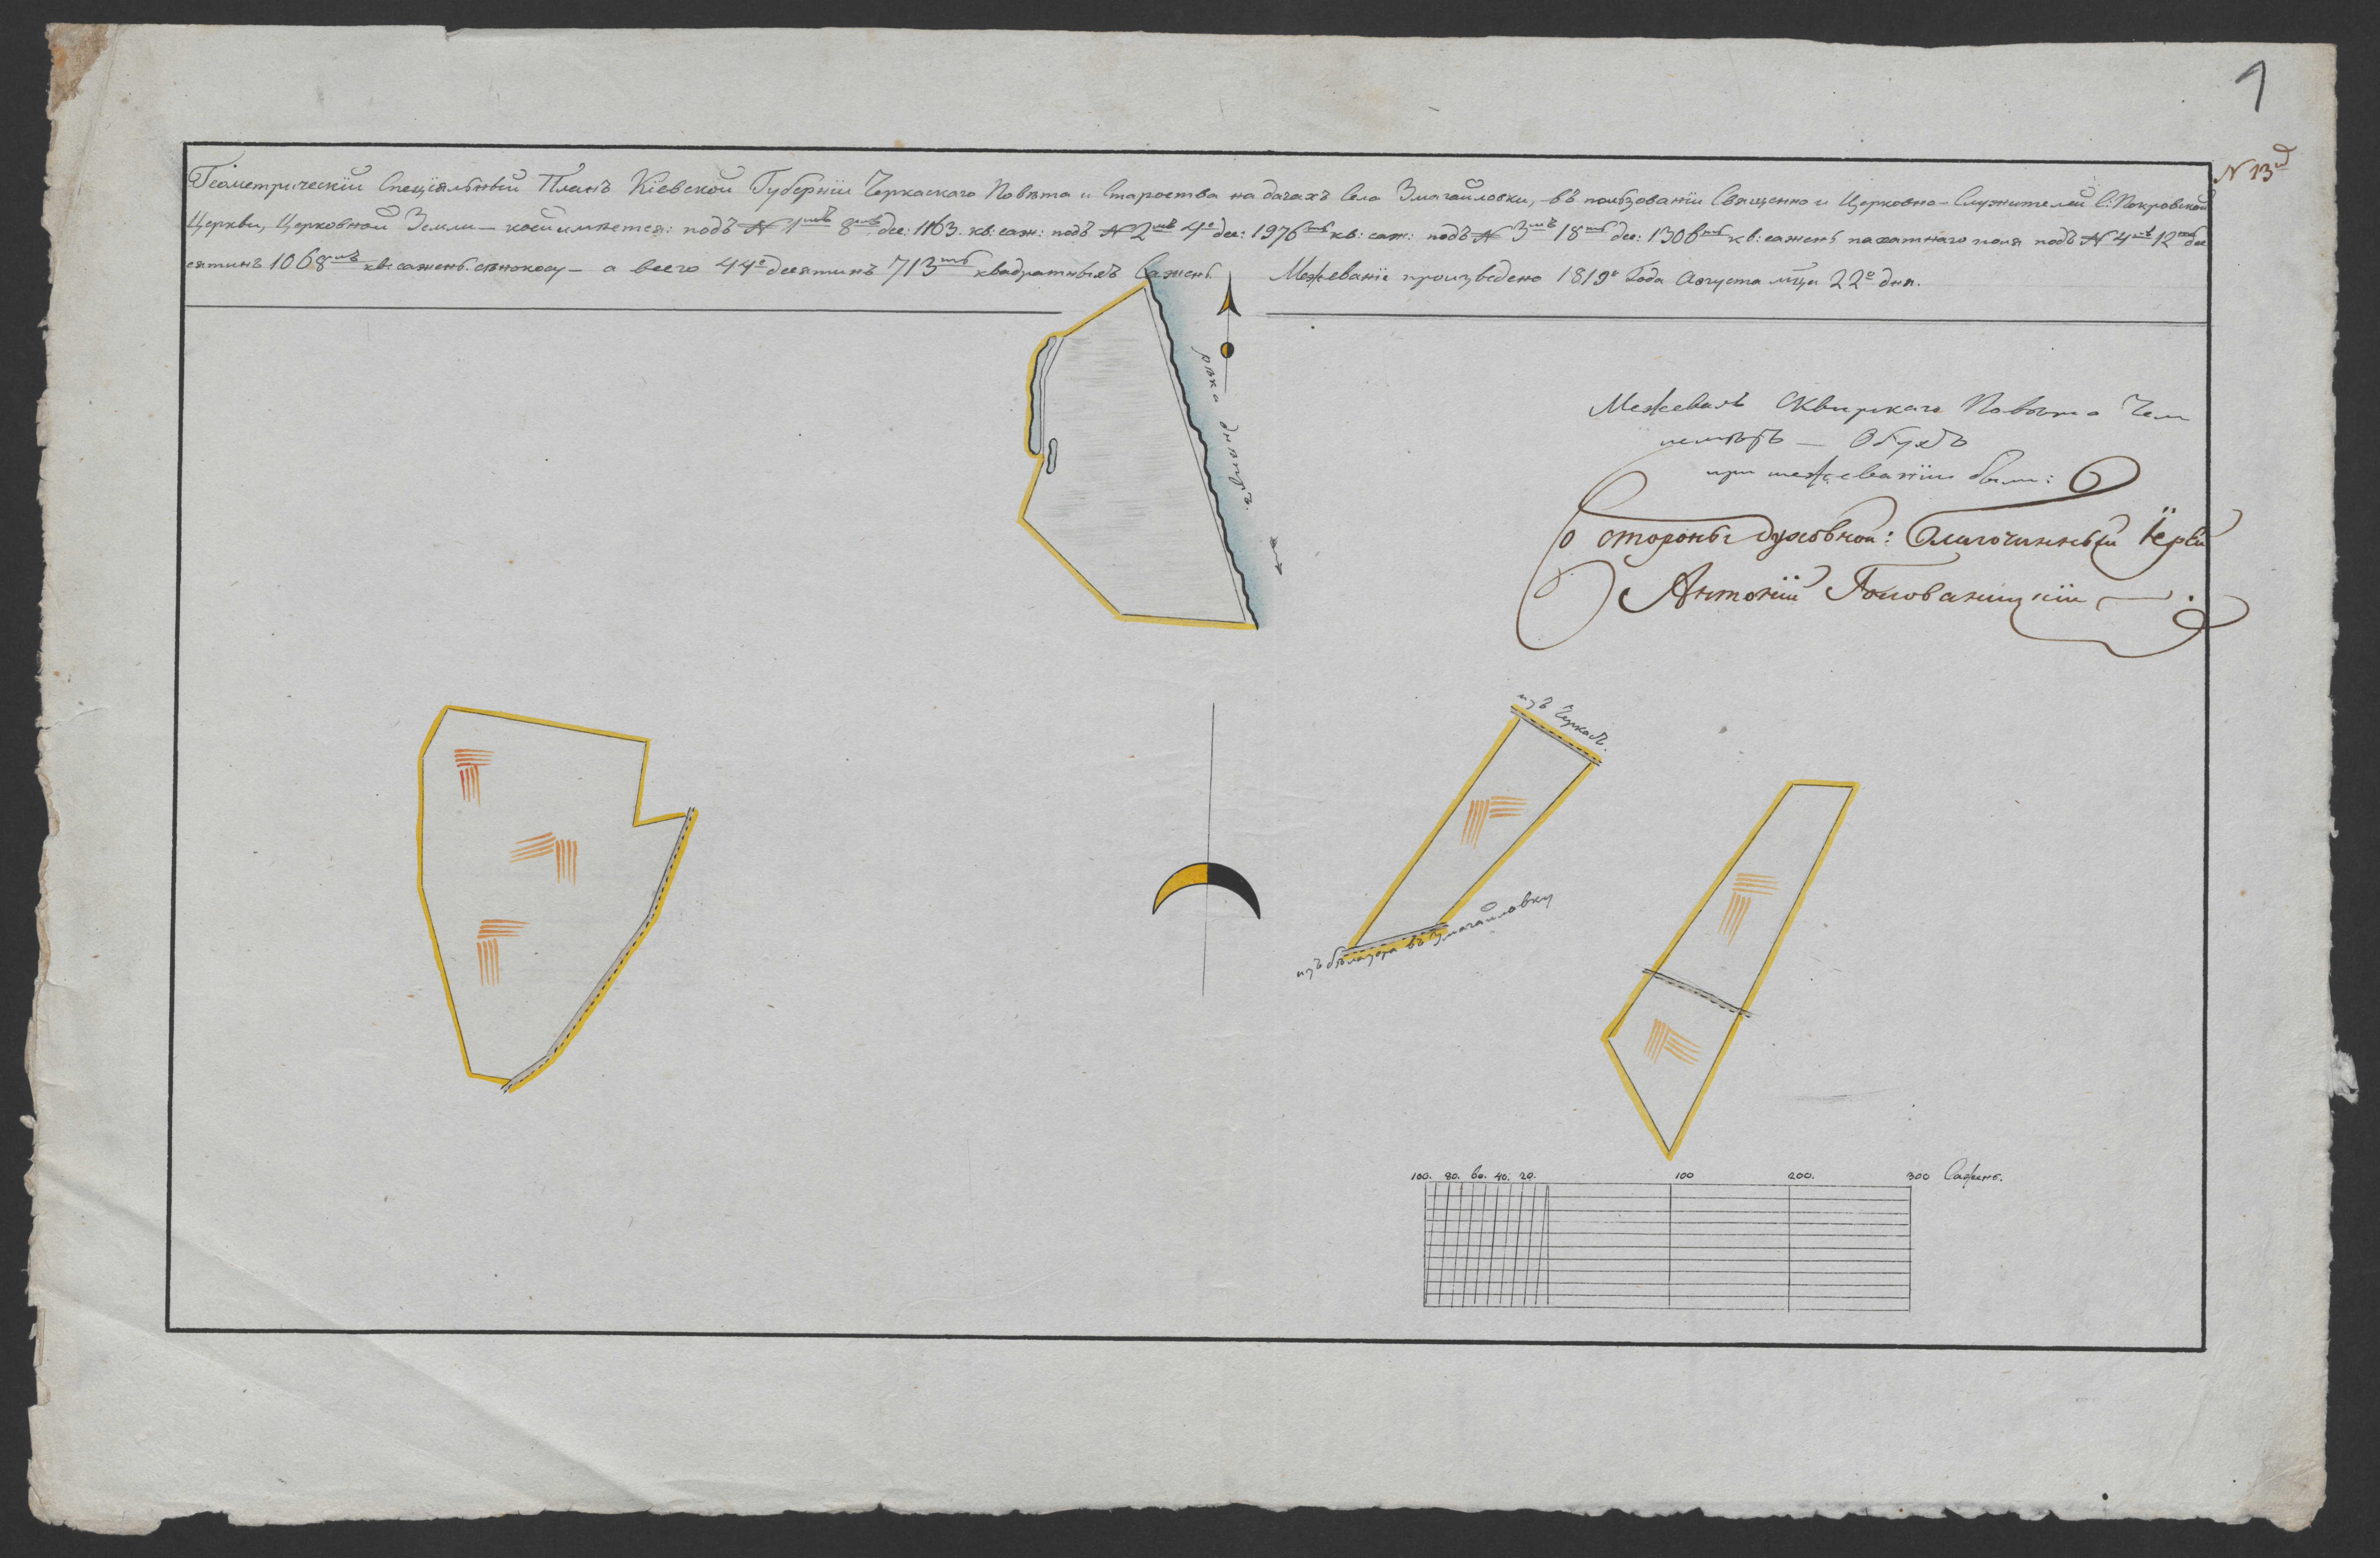 1
N 13й
Геометрическій Спеціяльный Планъ Кіевской Губерніи Черкаскаго Повѣта и Староства на дачахъ Села Змагайловки, въ пользованіи Священно и Церковно-Служителей С: Покровской
Церкви, Церковной Земли — коей имѣется: подъ N 1мъ 8мь дес: 1163. кв: саж: подъ N 2мъ 4е дес: 1976ть кв: саж: подъ N 3мъ 18ть дес: 1306ть кв: сажень пахатнаго поля подъ N 4мъ 12ть дес
сятинъ 1068мь кв: сажень сѣнокосу — а всего 44е десятинъ 713ть квадратныхъ Сажень. Межеваніе произведено 1819г Года Августа мца 22о дня.
рѣка днѣпръ.
Межевалъ Сквирскаго Повѣта Зем
лемѣръ — Обухъ
при межеваніи были:
Со стороны духовной: Благочинный Іерей
Антоній Головацицкій
изъ Черкасъ.
изъ бѣлазора въ Змагайловку
100. 80. 60. 40. 20. 100 200. 300 Сажень.